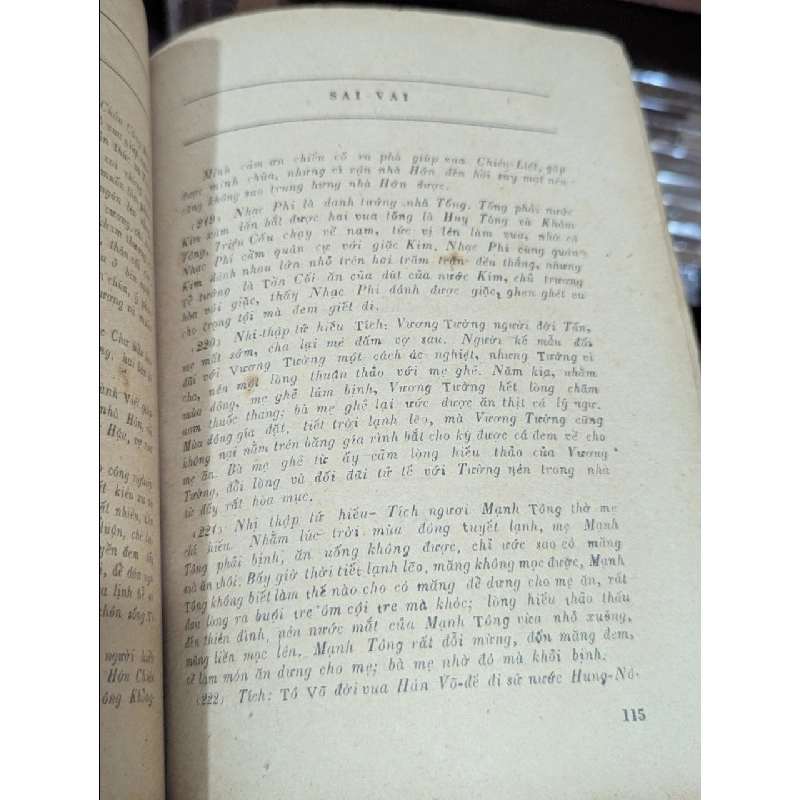 SÃI VÃI
Minh cảm ơn chiếu cố ra phò giúp vua Chiêu-Liệt, gặp
được minh chúa, nhưng vì vận nhà Hớn đến hồi suy mạt nên
cũng không sao trung hưng nhà Hớn được.
(219) Nhạc Phi là danh tướng nhà Tống. Tống phải nước
Kim xâm lấn bắt được hai vua tống là Huy Tông và Khâm
Tông, Triệu Cấu chạy về nam, tức vị lên làm vua, nhờ có
Nhạc Phi cầm quân cự với giặc Kim, Nhạc Phi cùng quân
Kim đánh nhau lớn nhỏ trên hai trăm trận đều thắng, nhưng
Tể tướng là Tần Cối ăn của đút của nước Kim, chủ trương
hòa với giặc, thấy Nhạc Phi đánh được giặc, ghen ghét vu
cho trọng tội mà đem giết đi.
(220) Nhị-thập tứ hiếu Tích: Vương Tường người đời Tấn,
mẹ mất sớm, cha lại mê đắm vợ sau. Người kế mẫu đối
đãi với Vương Tường một cách ác nghiệt, nhưng Tường vì
cha, nên một lòng thuận thảo với mẹ ghẻ. Năm kia, nhằm
mùa đông, mẹ ghẻ lâm bịnh, Vương Tường hết lòng chăm
nom thuốc thang; bà mẹ ghẻ lại ước được ăn thịt cá lý ngư.
Mùa đông giá đặt, tiết trời lạnh lẽo, mà Vương Tường cũng
không nại nằm trên băng giá rình bắt cho kỳ được cá đem về cho
mẹ ăn. Bà mẹ ghẻ từ ấy cảm lòng hiếu thảo của Vương
Tường, đổi lòng và đối đãi tử tế với Tường nên trong nhà
từ đấy rất hòa mục.
(221) Nhị thập tứ hiếu- Tích người Mạnh Tông thờ mẹ
chí hiếu. Nhằm lúc trời mùa đông tuyết lạnh, mẹ Mạnh
Tông phải bịnh, ăn uống không được, chỉ ước sao có măng
mà ăn thôi. Bấy giờ thời tiết lạnh lẽo, măng không mọc được, Mạnh
Tông không biết làm thế nào cho có măng để dưng cho mẹ ăn, rất
đau lòng ra buội tre ôm cội tre mà khóc; lòng hiếu thảo thấu
đến thiên đình, nên nước mắt của Mạnh Tông vừa nhỏ xuống,
măng liền mọc lên, Mạnh Tông rất đỗi mừng, đốn măng đem,
về làm món ăn dưng cho mẹ; bà mẹ nhờ đó mà khỏi bịnh.
(222) Tích: Tô Võ đời vua Hán Võ-đế đi sứ nước Hung-Nô.
115